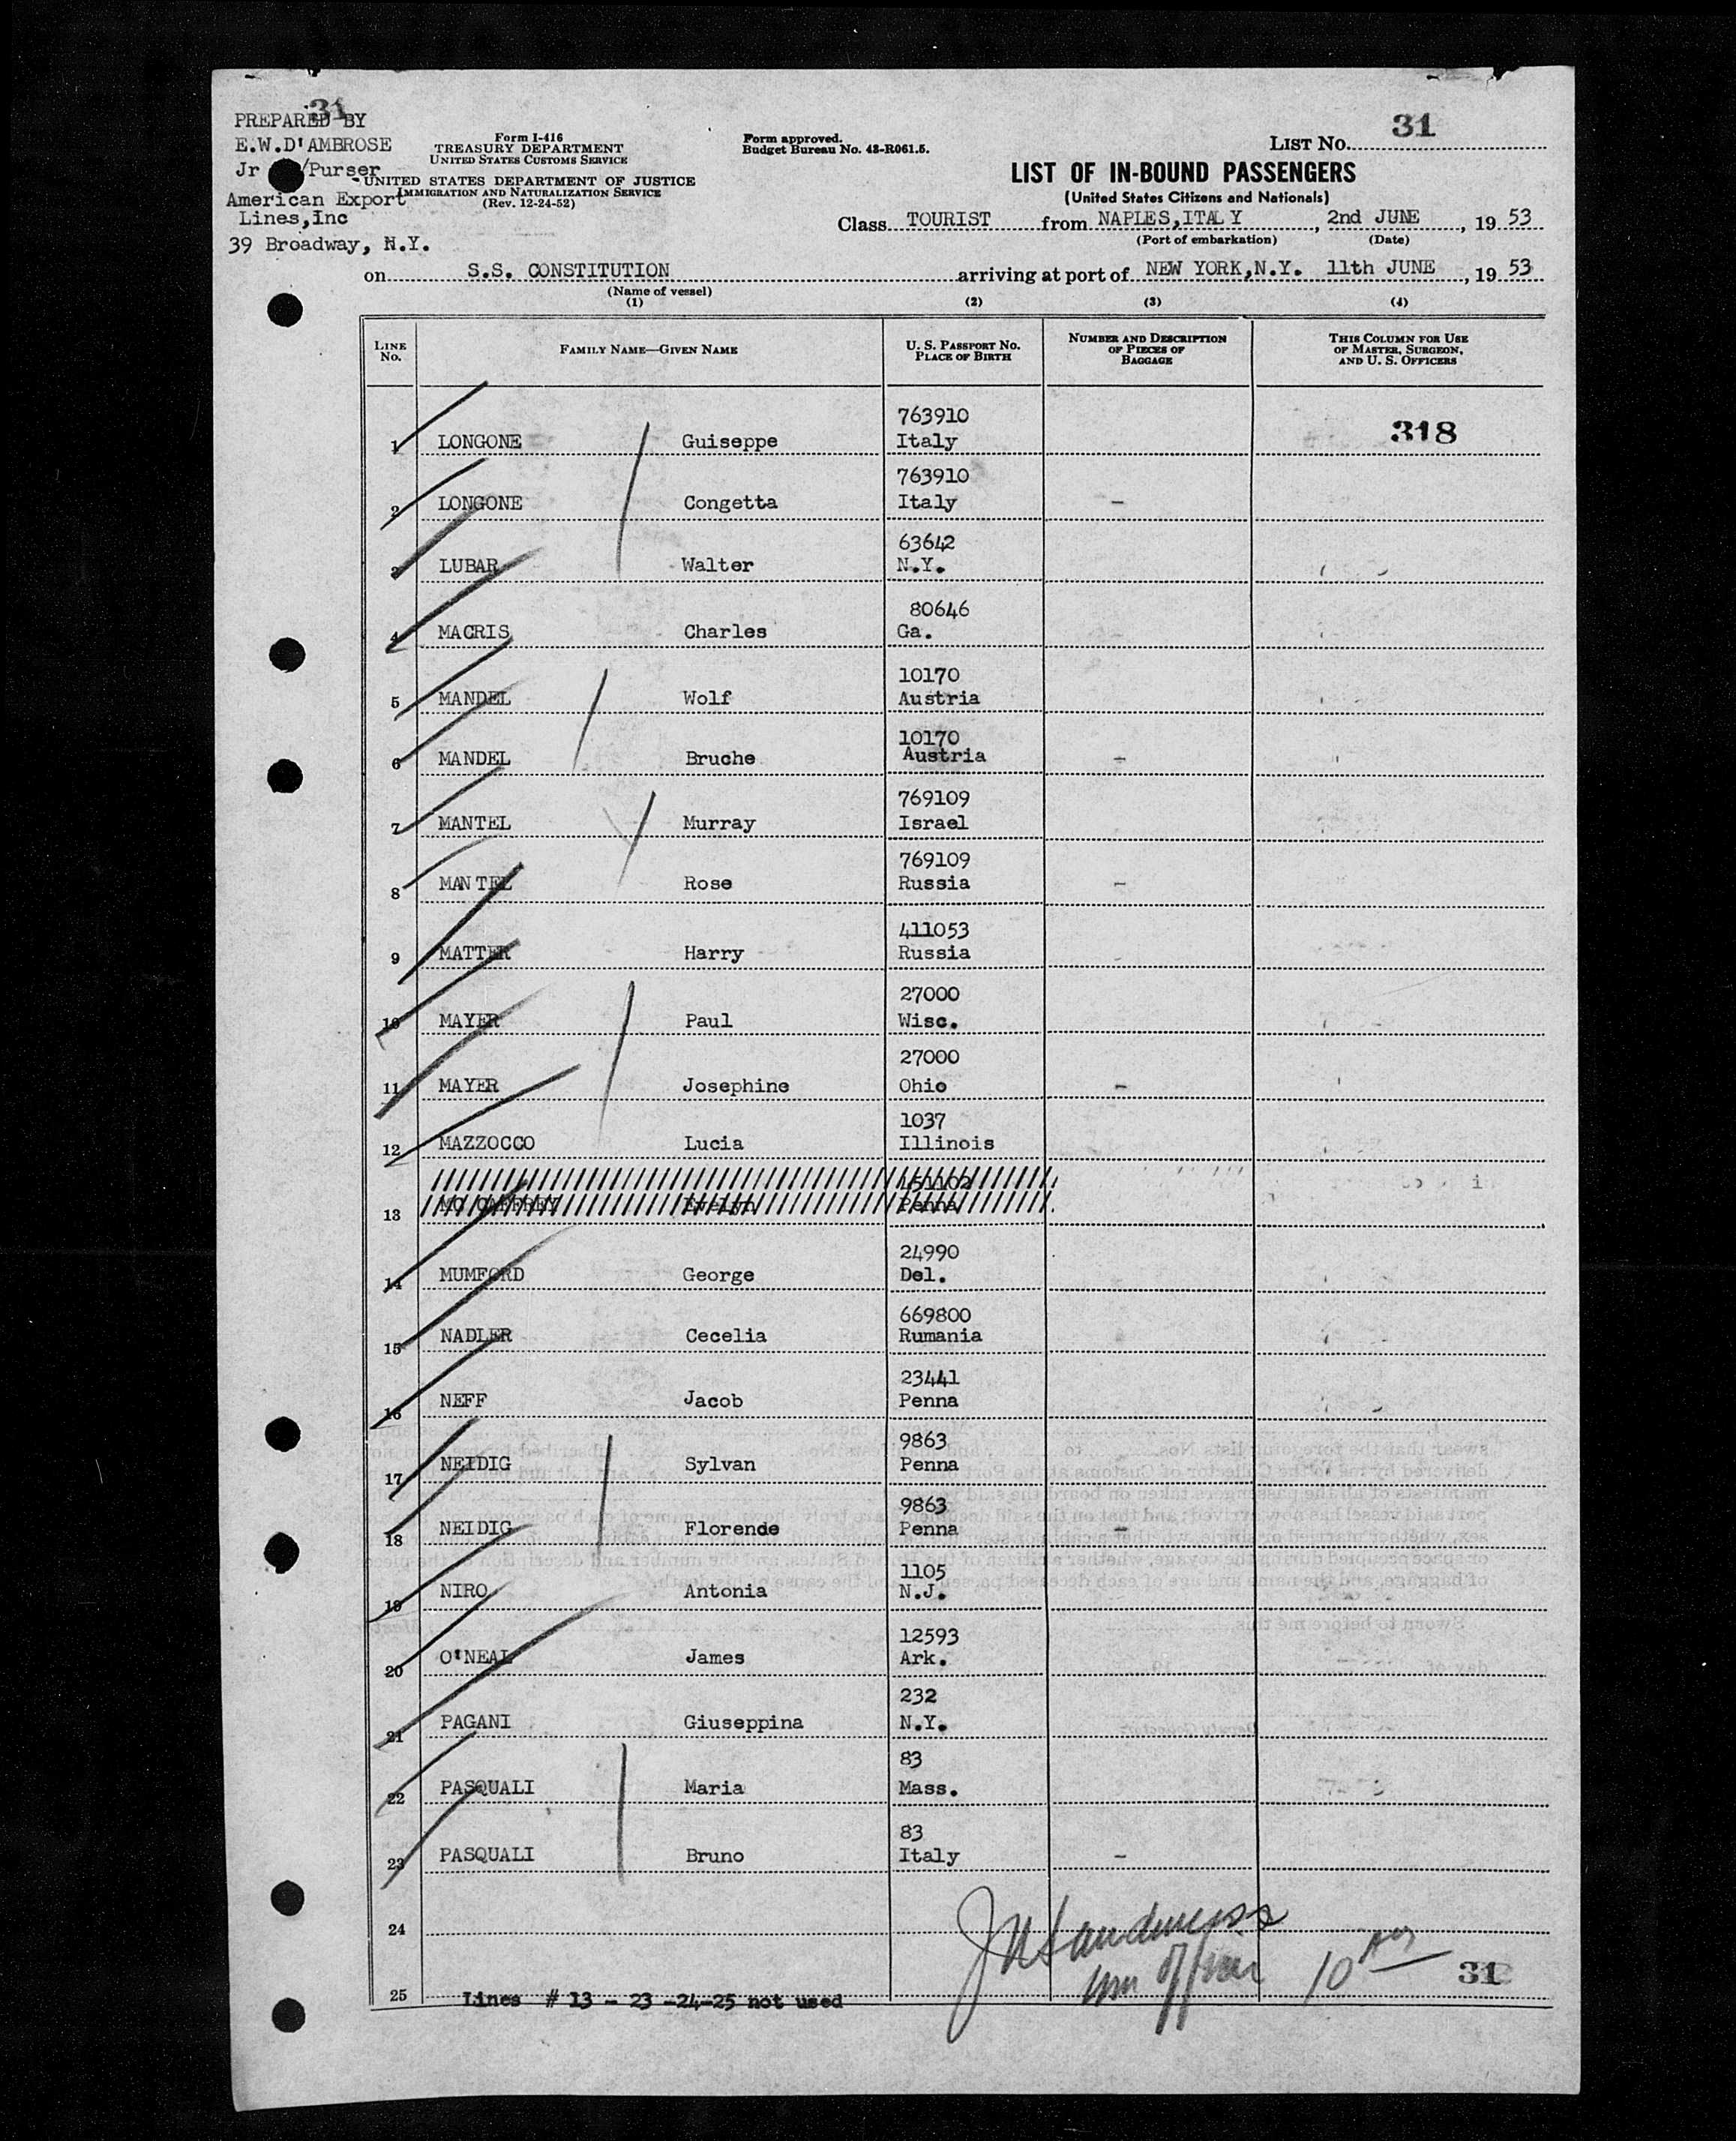 31
PREPARED BY
E.W.D'AMBROSE
Jr /Purser
American Export
Lines,Inc
39 Broadway, N.Y.
Form I-416
TREASURY DEPARTMENT
UNITED STATES CUSTOMS SERVICE
UNITED STATES DEPARTMENT OF JUSTICE
IMMIGRATION AND NATURALIZATION SERVICE
(Rev. 12-24-52)
Form approved.
Budget Bureau No. 43-R061.5.
LIST No. 31
LIST OF IN-BOUND PASSENGERS
(United States Citizens and Nationals)
Class TOURIST from NAPLES,ITALY , 2nd JUNE , 19 53
(Port of embarkation) (Date)
on S.S. CONSTITUTION arriving at port of NEW YORK,N.Y. 11th JUNE , 19 53
(Name of vessel)
(1) (2) (3) (4)
LINE No. FAMILY NAME—GIVEN NAME U. S. PASSPORT NO. PLACE OF BIRTH NUMBER AND DESCRIPTION OF PIECES OF BAGGAGE THIS COLUMN FOR USE OF MASTER, SURGEON, AND U. S. OFFICERS
763910
1 LONGONE Guiseppe Italy 318
763910
2 LONGONE Congetta Italy –
63642
3 LUBAR Walter N.Y.
80646
4 MACRIS Charles Ga.
10170
5 MANDEL Wolf Austria
10170
6 MANDEL Bruche Austria –
769109
7 MANTEL Murray Israel
769109
8 MANTEL Rose Russia –
411053
9 MATTER Harry Russia
27000
10 MAYER Paul Wisc.
27000
11 MAYER Josephine Ohio –
1037
12 MAZZOCCO Lucia Illinois
151102
13 MC CAFFREY Evelyn Penna
24990
14 MUMFORD George Del.
669800
15 NADLER Cecelia Rumania
23441
16 NEFF Jacob Penna
9863
17 NEIDIG Sylvan Penna
9863
18 NEIDIG Florende Penna –
1105
19 NIRO Antonia N.J.
12593
20 O'NEAL James Ark.
232
21 PAGANI Giuseppina N.Y.
83
22 PASQUALI Maria Mass.
83
23 PASQUALI Bruno Italy –
24
10
31
25 Lines # 13 – 23 –24–25 not used